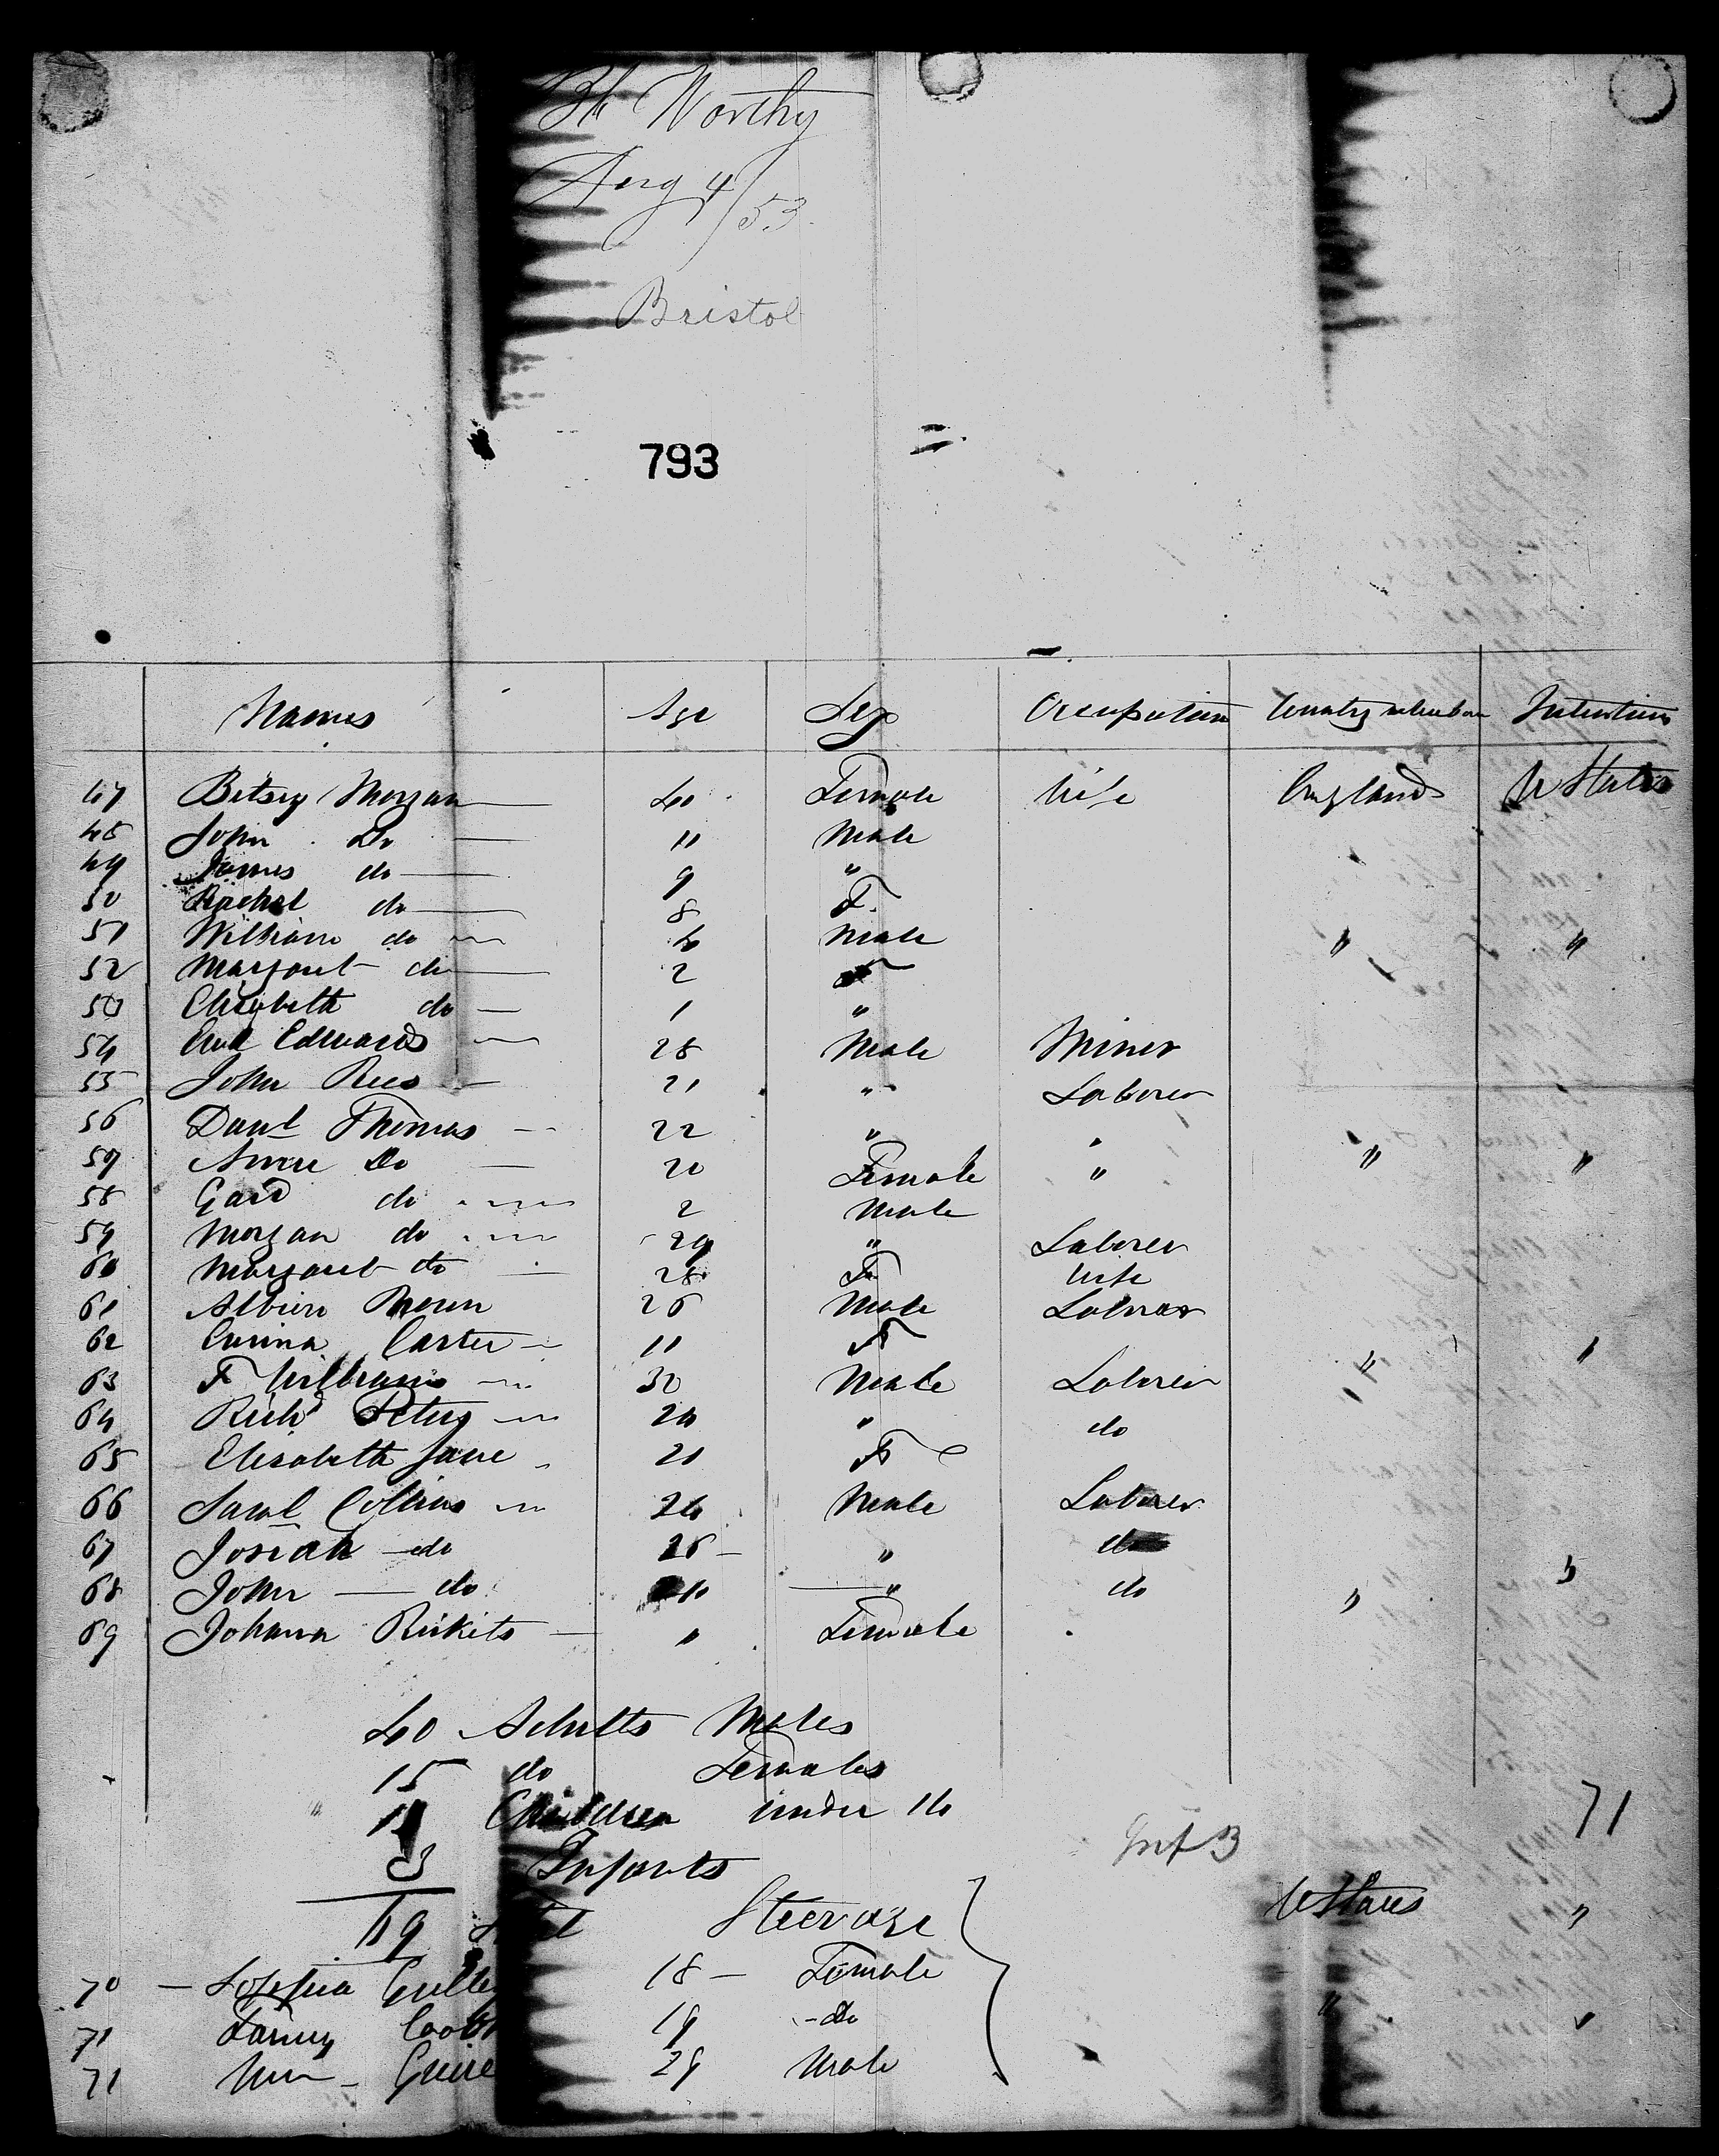 Bk Worthy
Aug 4/53.
Bristol
793
Names Age Sex Occupation Country Intention
47 Betsy Morgan 40 Female Wife England U States
48 John Do 11 Male
49 James do 9 "
50 Rachel do 8 F.
51 William do 4 Male " "
52 Margaret do 2 F
53 Elizabeth do 1 "
54 Edwards 28 Male Miner
55 John Rees 21 " Laborer
56 Danl Thomas 22 " "
57 Do 20 Female " " "
58 do 2 Male
59 Morgan do 29 " Laborer
60 Margaret do 28 F Wife
61 26 Male Laborer
62 Carter 11 F
63 F Williams 30 Male Laborer " "
64 Richd Peters 24 " do
65 Elisabeth Jane 21 F
66 Saml Collins 24 Male Laborer
67 Josiah do 26 " do
68 John do " do " "
69 Johana Rickets " Female
40 Adults Males
15 do Females
Children under 14
3 Infants
71
69 Steerage
U States "
70 Sophia 18 Female
71 Fanny 19 do " "
71 Wm 29 Male